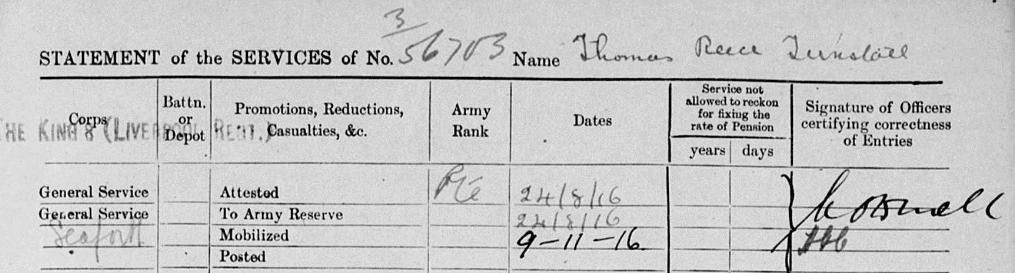 3/
STATEMENT of the SERVICES of No. 56703 Name Thomas Reece Tunstall
Corps Battn. or Depot Promotions, Reductions, Casualties, &c. Army Rank Dates Service not allowed to reckon for fixing the rate of Pension years days Signature of Officers certifying correctness of Entries
THE KING'S (LIVERPOOL REGT.)
General Service Attested Pte 24/8/16
General Service To Army Reserve 24/8/16
Seaforth Mobilized 9-11-16.
Posted